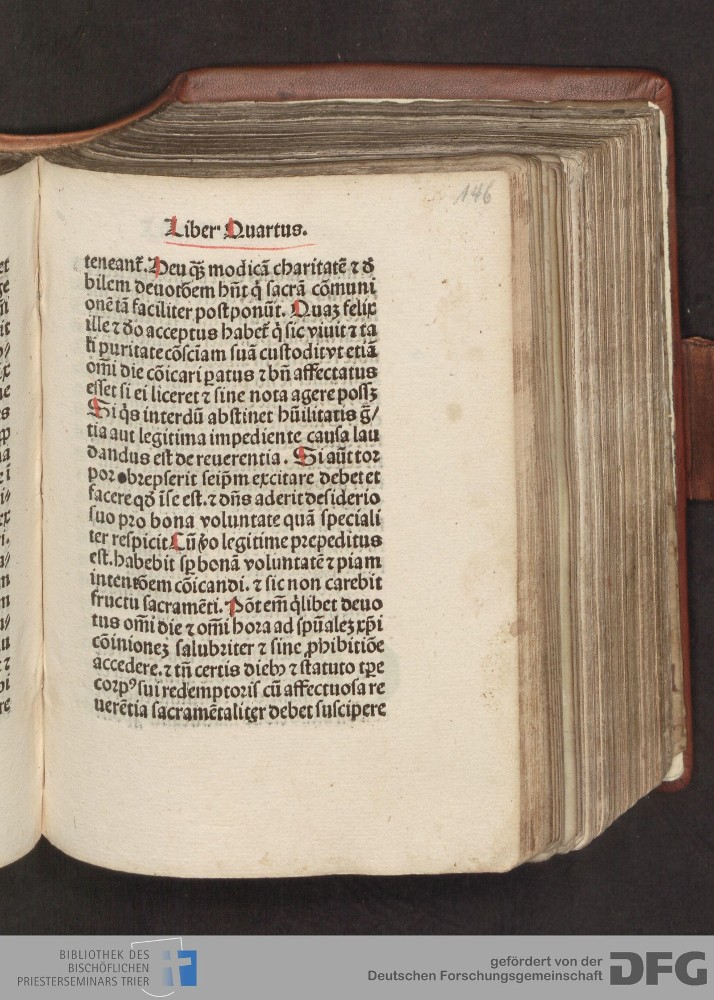 146
Liber Quartus.
teneant᷑. Heu qͣꝫ modicā charitatē ⁊ dͦ
bilem deuotōem hn̄t qͥ sacrā cōmuni
onē tā faciliter postponūt. Quaꝫ felix
ille ⁊ dͦo acceptus habet᷑ qͥ sic viuit ⁊ ta
li puritate cōsciam̄ suā custodit vt etiā
om̄i die cōicari ꝑatus ⁊ bn̄ affectatus
esset si ei liceret ⁊ sine nota agere possꝫ
Si qͥs interdū abstinet hūilitatis gr̄/
tia aut legitima impediente causa lau
dandus est de reuerentia. Si aūt tor
por obrepserit seip̄m excitare debet et
facere qď ī se est. ⁊ dn̄s aderit desiderio
suo pro bona voluntate quā speciali
ter respicit Cū ꝟo legitime prepeditus
est. habebit sꝑ bonā voluntatē ⁊ piam
intentōem cōicandi. ⁊ sic non carebit
fructu sacramēti. Pōt em̄ qͥlibet deuo
tus om̄i die ⁊ om̄i hora ad spūalēꝫ xp̄i
cōinionēꝫ salubriter ⁊ sine ꝓhibitiōe
accedere. ⁊ tn̄ certis diebꝫ ⁊ statuto tꝑe
corpꝰ sui redemptoris cū affectuosa re
uerētia sacramētaliter debet suscipere
BIBLIOTHEK DES
BISCHÖFLICHEN
PRIESTERSEMINARS TRIER
gefördert von der
Deutschen Forschungsgemeinschaft
DFG